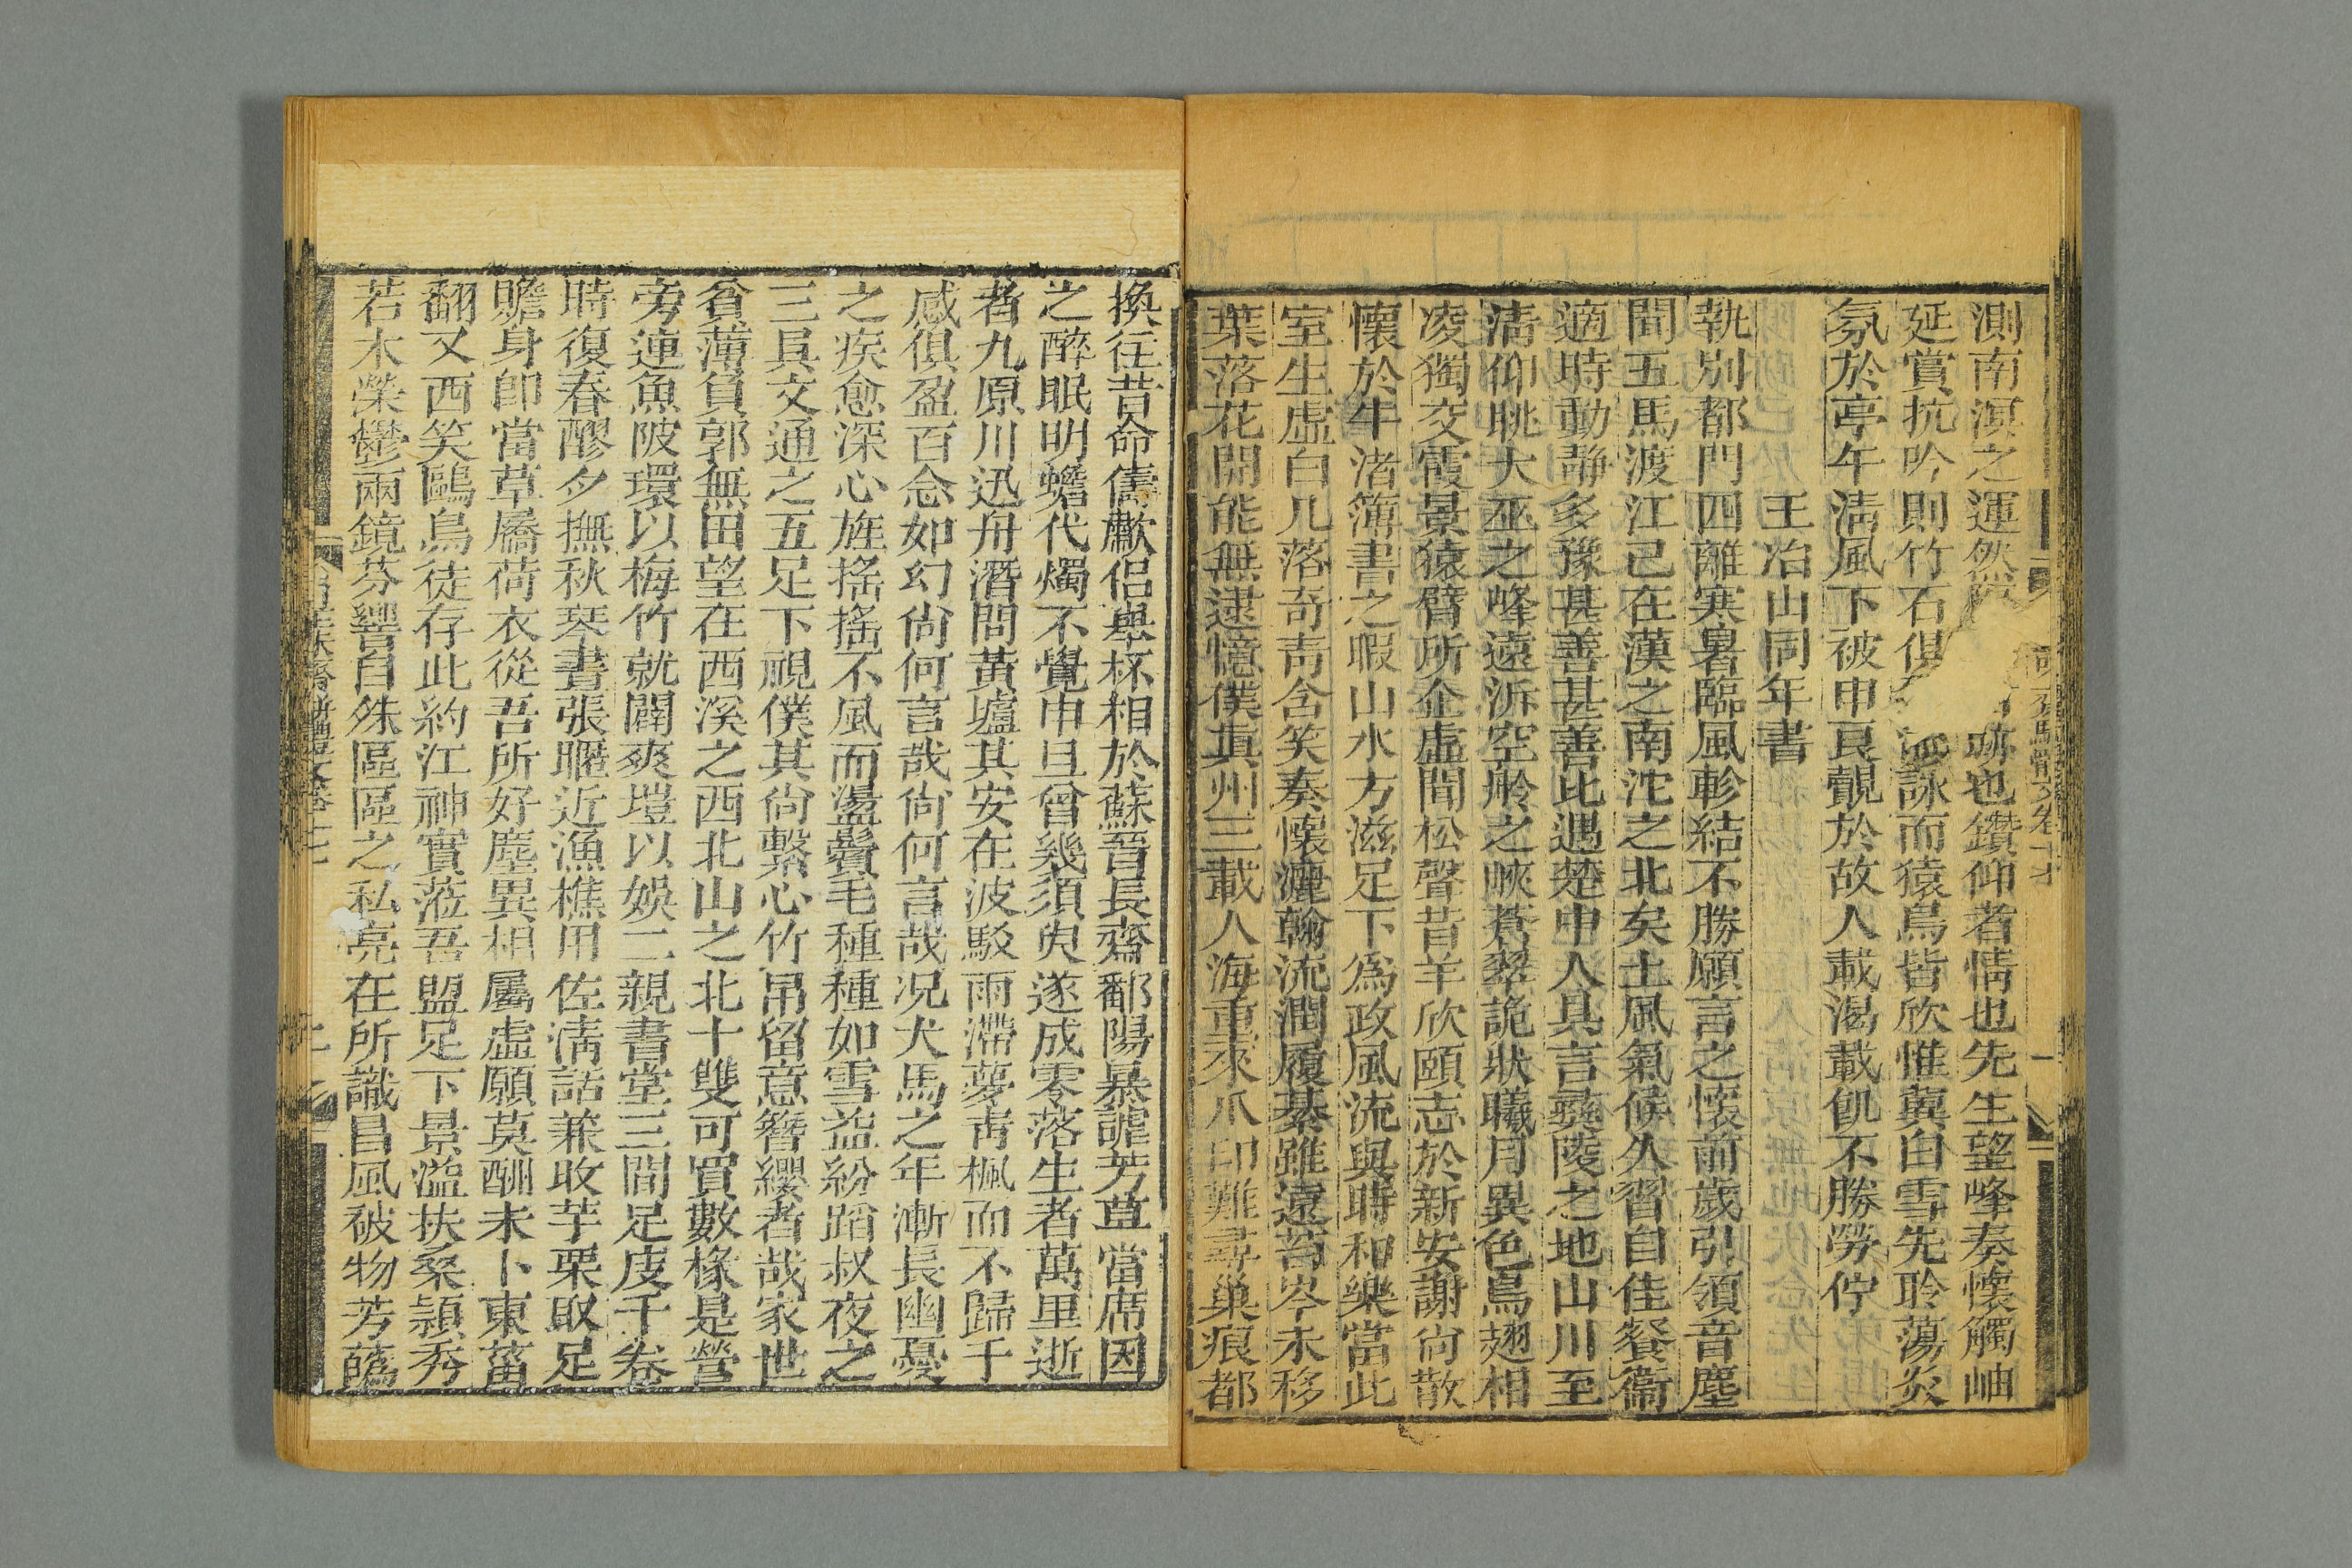 測南溟之運然
跡也鑽仰者情也先生望峰奏懷觸岫
延賞抗吟則竹石俱
詠而猿鳥皆欣惟冀白雪先聆蕩炎
氛於亭午清風下被申良覿於故人載渴載飢不勝勞佇
王冶山同年書
執別都門四離寒暑臨風軫結不勝願言之懷前歲引領音塵
聞五馬渡江已在漢之南沱之北矣土風氣候久習自佳餐衞
適時動靜多豫甚善甚善比遇楚中人具言彝陵之地山川至
淸仰眺大巫之峰遠泝空舲之峽蒼翠詭狀曦月異色鳥翅相
凌獨交霞景猿臂所企虛聞松聲昔羊欣頤志於新安謝尙散
懷於牛渚簿書之暇山水方滋足下爲政風流與時和樂當此
室生虛白几落奇靑含笑奏懷灑翰流潤履綦雖遠苔岑未移
葉落花開能無逮憶僕眞州三載人海重來爪印難尋巢痕都
換往昔命儔歗侶舉杯相於蘇晉長齋鄱陽暴謔芳荁當席因
之醉眠明蟾代燭不覺申旦曾幾須臾遂成零落生者萬里逝
者九原川迅舟潛問黃壚其安在波駁雨滯夢靑楓而不歸千
感俱盈百念如幻尙何言哉尙何言哉况犬馬之年漸長幽憂
之疾愈深心旌搖搖不風而盪鬢毛種種如雪益紛蹈叔夜之
三具文通之五足下視僕其尙繫心竹帛留意簪纓者哉家世
貧薄負郭無田望在西溪之西北山之北十雙可買數椽是營
旁連魚陂環以梅竹就闢爽塏以娛二親書堂三間足庋千卷
時復春醪夕撫秋琴晝張暱近漁樵用佐淸話兼收芋栗取足
贍身卽當草屩荷衣從吾所好塵異相屬虛願莫酬未卜東菑
翻又西笑鷗鳥徒存此約江神實蒞吾盟足下景溢扶桑穎秀
若木榮鬱兩鏡芬響自殊區區之私亮在所識昌風被物芳蘤